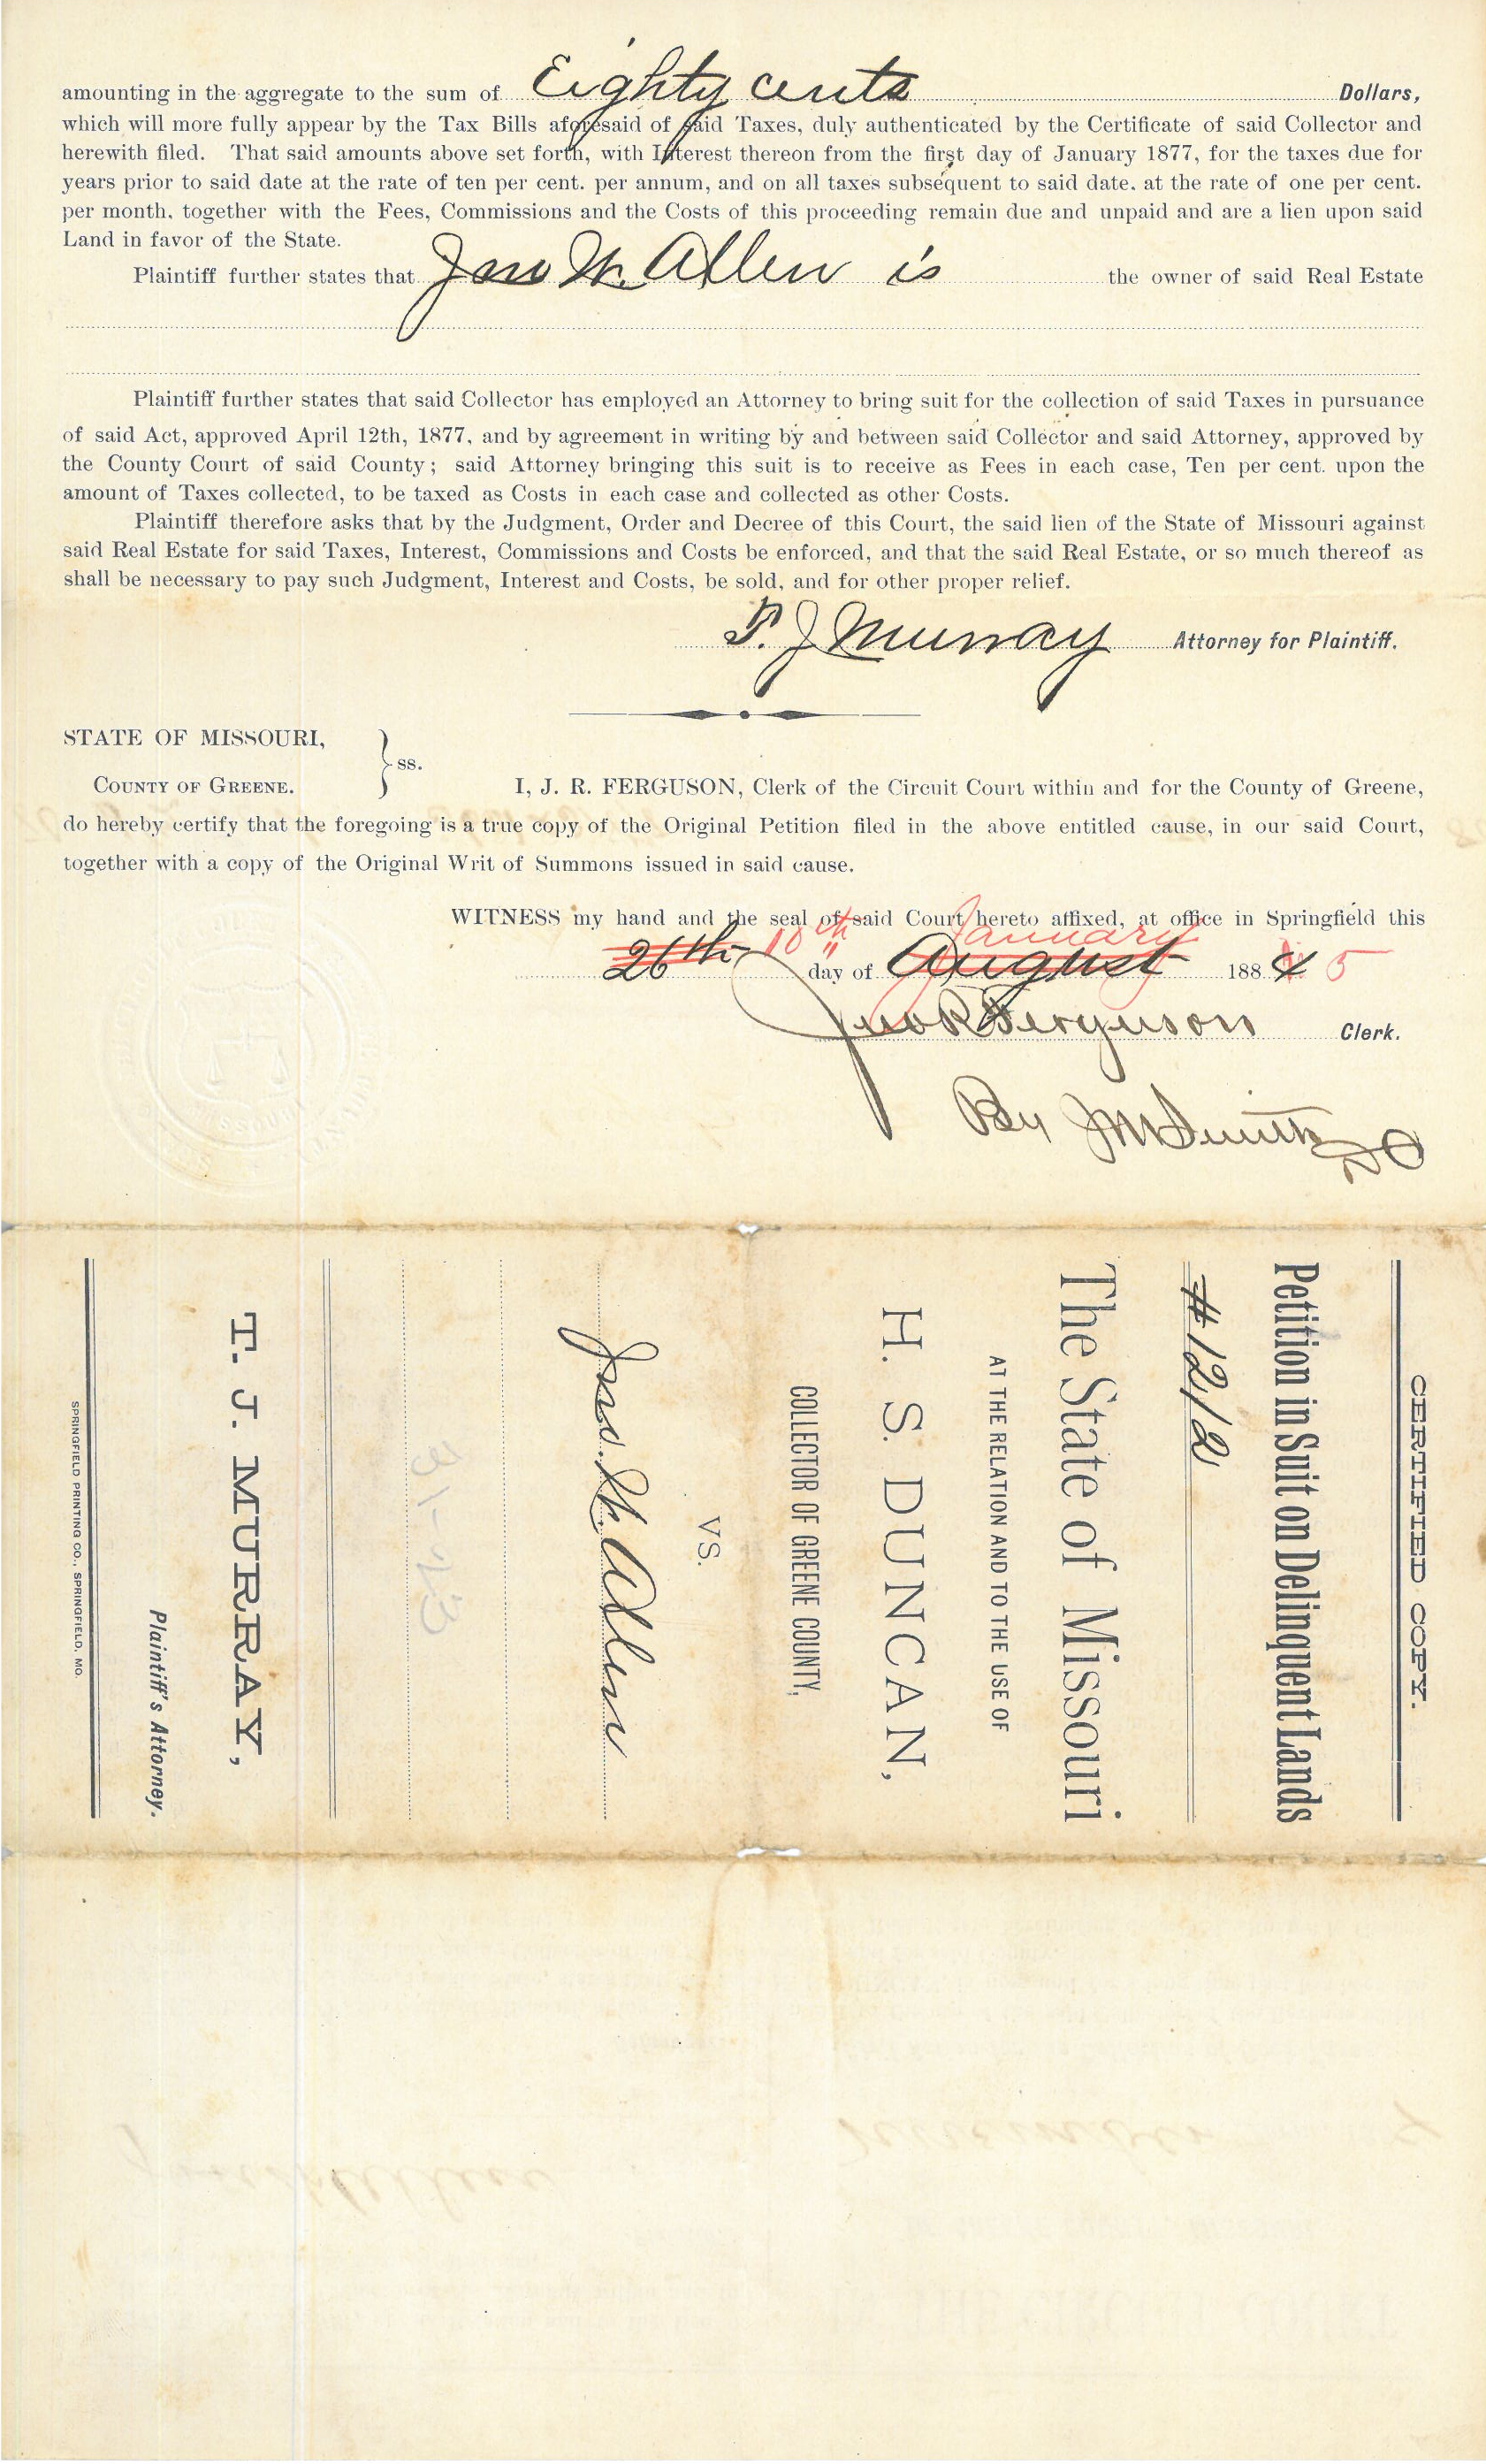 amounting in the aggregate to the sum of Eighty cents Dollars,
which will more fully appear by the Tax Bills aforesaid of said Taxes, duly authenticated by the Certificate of said Collector and
herewith filed. That said amounts above set forth, with Interest thereon from the first day of January 1877, for the taxes due for
years prior to said date at the rate of ten per cent. per annum, and on all taxes subsequent to said date, at the rate of one per cent.
per month, together with the Fees, Commissions and the Costs of this proceeding remain due and unpaid and are a lien upon said
Land in favor of the State.
Plaintiff further states that Jno W. Allen is the owner of said Real Estate
Plaintiff further states that said Collector has employed an Attorney to bring suit for the collection of said Taxes in pursuance
of said Act, approved April 12th, 1877, and by agreement in writing by and between said Collector and said Attorney, approved by
the County Court of said County; said Attorney bringing this suit is to receive as Fees in each case, Ten per cent. upon the
amount of Taxes collected, to be taxed as Costs in each case and collected as other Costs.
Plaintiff therefore asks that by the Judgment, Order and Decree of this Court, the said lien of the State of Missouri against
said Real Estate for said Taxes, Interest, Commissions and Costs be enforced, and that the said Real Estate, or so much thereof as
shall be necessary to pay such Judgment, Interest and Costs, be sold, and for other proper relief.
T. J Murray Attorney for Plaintiff.
STATE OF MISSOURI,
ss.
COUNTY OF GREENE. I, J. R. FERGUSON, Clerk of the Circuit Court within and for the County of Greene,
do hereby certify that the foregoing is a true copy of the Original Petition filed in the above entitled cause, in our said Court,
together with a copy of the Original Writ of Summons issued in said cause.
WITNESS my hand and the seal of said Court hereto affixed, at office in Springfield this
26th 10th day of August January 1884 5
Jno R Ferguson Clerk.
By J M Smith DC
CERTIFIED COPY.
Petition in Suit on Delinquent Lands
#1212
The State of Missouri
AT THE RELATION AND TO THE USE OF
H. S. DUNCAN,
COLLECTOR OF GREENE COUNTY,
VS.
Jno. W. Allen
T. J. MURRAY,
Plaintiff's Attorney.
SPRINGFIELD PRINTING CO., SPRINGFIELD, MO.